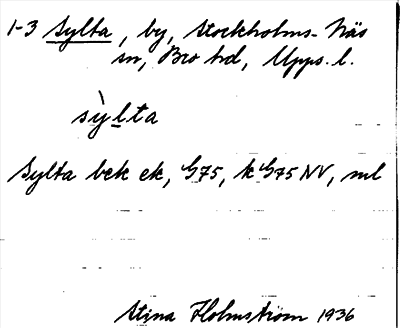 1-3 Sylta, by, Stockholms-Näs
sn, Bro hd, Upps. l.
sỳlta
Sylta bek ek, G75, k G75 NV, ml
Stina Holmström 1936